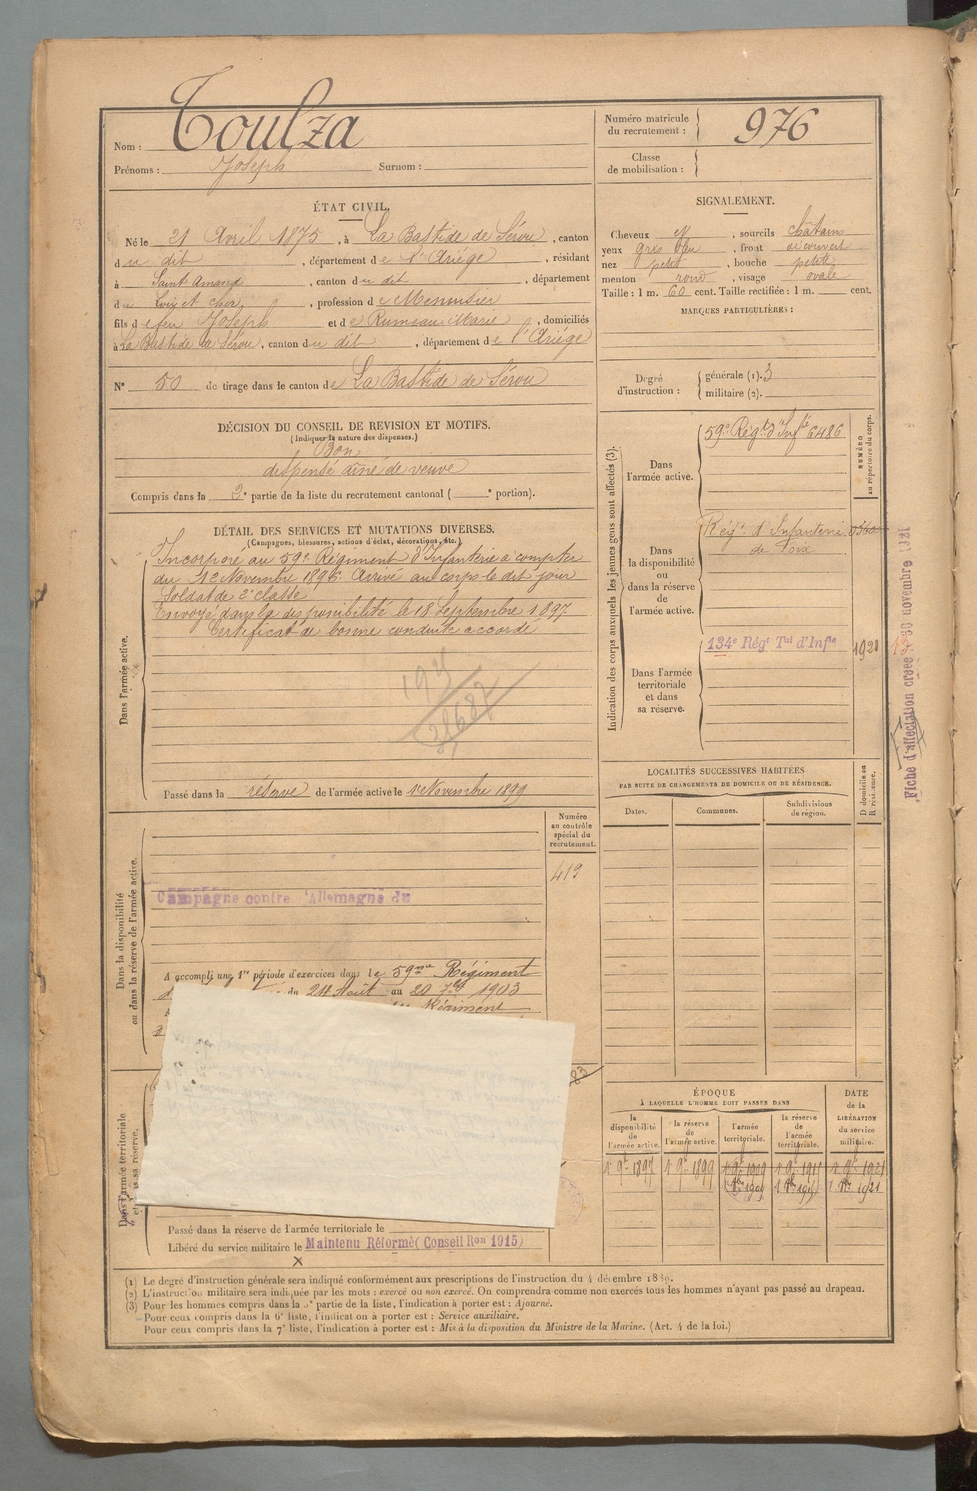 Nom : Toulza
Prénoms : Joseph Surnom :
Numéro matricule du recrutement : 976
Classe de mobilisation :
ÉTAT CIVIL.
Né le 21 Avril 1875, à La Bastide de Sérou, canton
du dit, département de l'Ariége, résidant
à Saint Amand, canton du dit, département
du Loir et cher, profession de Menuisier
fils de feu Joseph et de Rumeau Marie, domiciliés
à La Bastide de Sérou, canton du dit, département de l'Ariége
N° 50 de tirage dans le canton de La Bastide de Sérou
SIGNALEMENT.
Cheveux et, sourcils châtains
yeux gris bleu, front découvert
nez petit, bouche petite
menton rond, visage ovale
Taille : 1 m. 60 cent. Taille rectifiée : 1 m. cent.
MARQUES PARTICULIÈRES :
Degré d'instruction : générale (1). 3
militaire (2).
DÉCISION DU CONSEIL DE REVISION ET MOTIFS.
(Indiquer la nature des dispenses.)
Bon
dispensé aîné de veuve
Compris dans la 2e partie de la liste du recrutement cantonal ( e portion).
DÉTAIL DES SERVICES ET MUTATIONS DIVERSES.
(Campagnes, blessures, actions d'éclat, décorations, etc.)
Dans l'armée active.
Incorporé au 59e Régiment d'Infanterie à compter
du 1e Novembre 1896. Arrivé au corps le dit jour
Soldat de 2e classe
Envoyé dans la disponibilité le 18 Septembre 1897
Certificat de bonne conduite accordé
Passé dans la réserve de l'armée active le 1e Novembre 1899
Indication des corps auxquels les jeunes gens sont affectés (3).
NUMÉRO
au répertoire du corps.
Dans l'armée active.
59e Régt d'Infie 6486
Dans la disponibilité ou dans la réserve de l'armée active.
Régt d'Infanterie
de Foix
Dans l'armée territoriale et dans sa réserve.
134e Régt Tal d'Infie
1920
Fiche d'affectation créée 30 novembre 1921
LOCALITÉS SUCCESSIVES HABITÉES
PAR SUITE DE CHANGEMENTS DE DOMICILE OU DE RÉSIDENCE.
Dates.
Communes.
Subdivisions de région.
D domicile ou
R résidence.
Numéro au contrôle spécial du recrutement.
419
Dans la disponibilité
ou dans la réserve de l'armée active.
Campagne contre l'Allemagne du
A accompli une 1re période d'exercices dans le 59me Régiment
du 24 Août au 20 7bre 1903
Régiment
Dans l'armée territoriale
et dans sa réserve.
Passé dans la réserve de l'armée territoriale le
Libéré du service militaire le Maintenu Réformé (Conseil Ron 1915)
ÉPOQUE
À LAQUELLE L'HOMME DOIT PASSER DANS
DATE de la LIBÉRATION du service militaire.
la disponibilité de l'armée active.
la réserve de l'armée active.
l'armée territoriale.
la réserve de l'armée territoriale.
1 9e 1897
1 9e 1899
1 9e 1909
1 9e 1915
1 9e 1921
(1) Le degré d'instruction générale sera indiqué conformément aux prescriptions de l'instruction du 4 décembre 1889.
(2) L'instruction militaire sera indiquée par les mots : exercé ou non exercé. On comprendra comme non exercés tous les hommes n'ayant pas passé au drapeau.
(3) Pour les hommes compris dans la 5e partie de la liste, l'indication à porter est : Ajourné.
Pour ceux compris dans la 6e liste, l'indication à porter est : Service auxiliaire.
Pour ceux compris dans la 7e liste, l'indication à porter est : Mis à la disposition du Ministre de la Marine. (Art. 4 de la loi.)